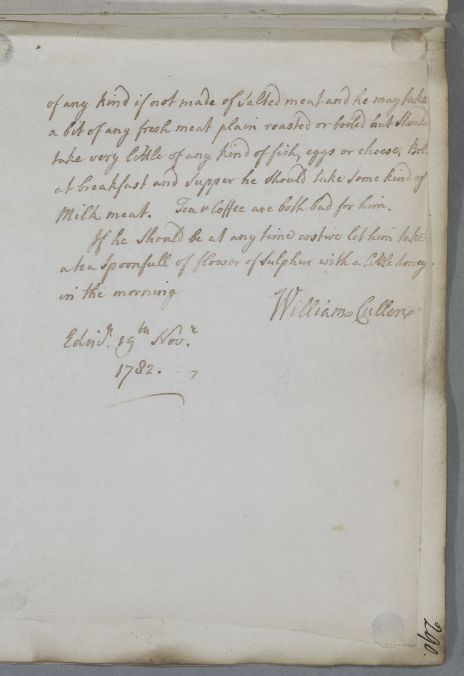 of any kind if not made of Salted meat and he may take
a bit of any fresh meat plain roasted or boiled but should
take very little of any kind of fish, eggs or cheese, Both
at breakfast and Supper he should take Some kind of
Milk meat. Tea & Coffee are both bad for him.
If he Should be at any time costive let him take
a tea Spoonfull of flower of Sulphur with a little honey
in the morning
William Cullen
Edinr. 19th Novr
1782.
290.